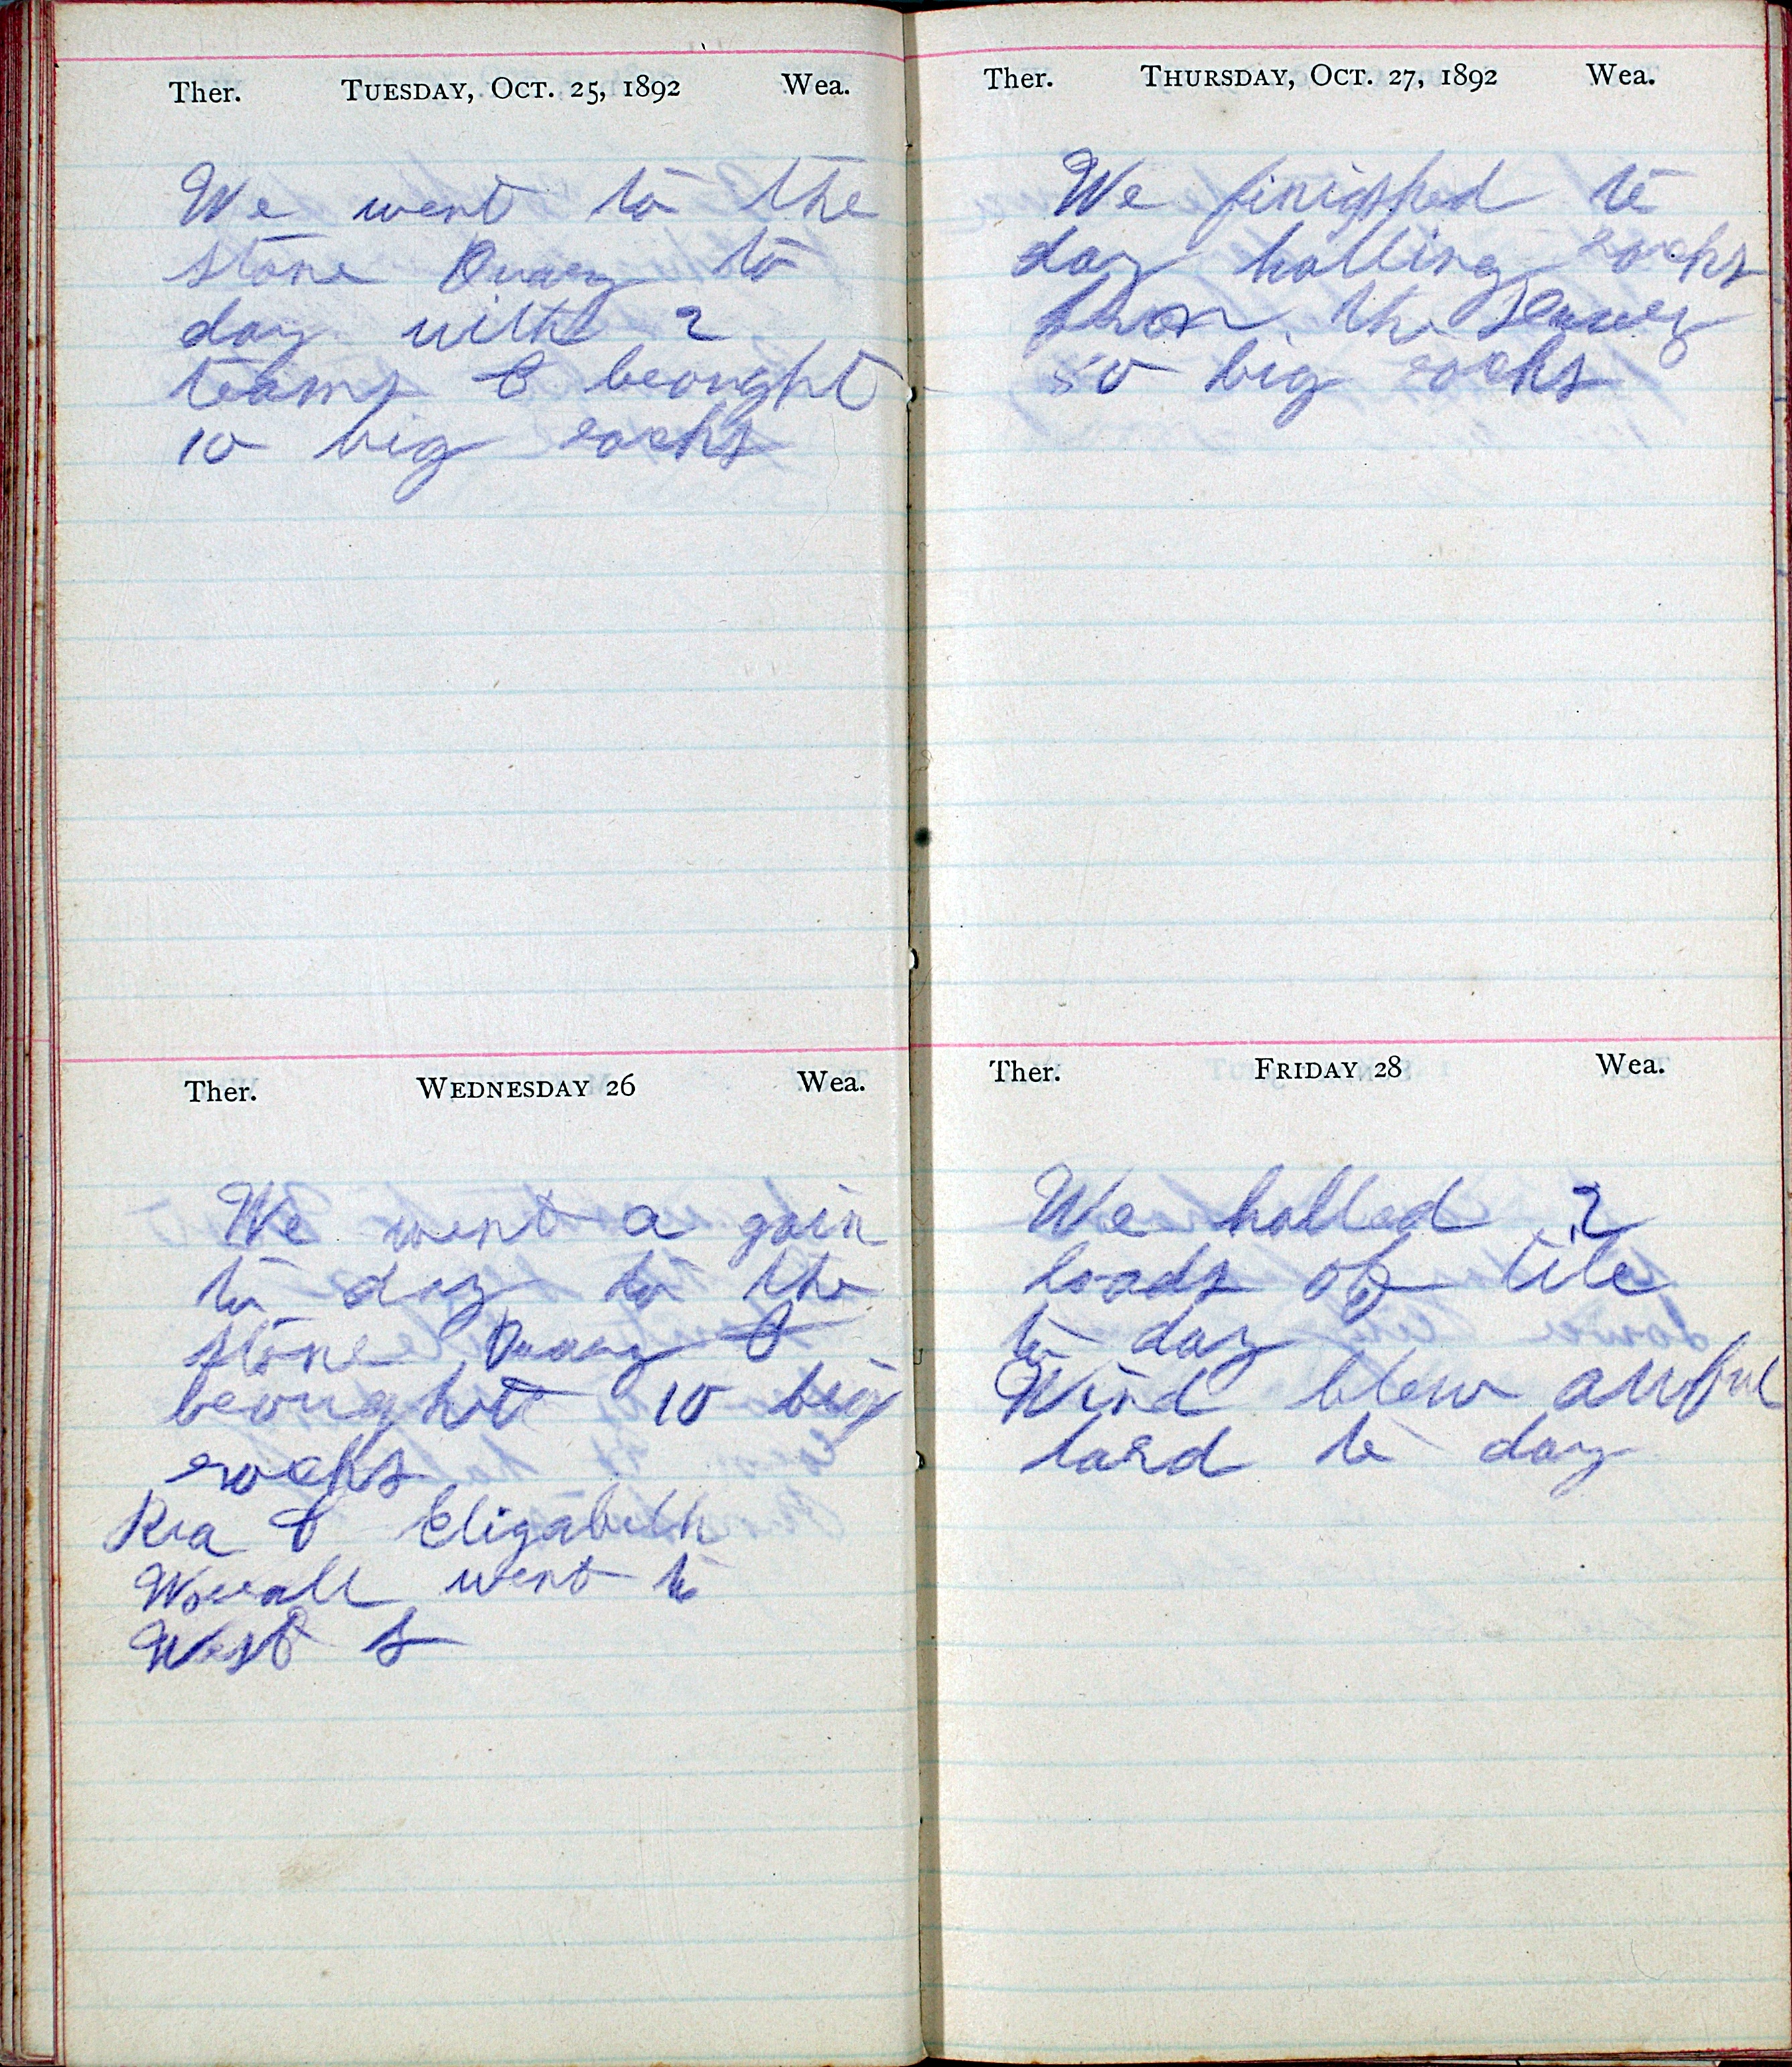 Ther. TUESDAY, OCT. 25, 1892 Wea.
We went to the
stone Quary to
day with 2
teams & brought
10 big rocks
Ther. WEDNESDAY 26 Wea.
We went a gain
to day to the
stone Quary &
brought 10 big
rocks
& Elizabeth
Worrall went to
West S
Ther. THURSDAY, OCT. 27, 1892 Wea.
We finished to
day halling rocks
from the
50 big rocks
Ther. FRIDAY 28 Wea.
We halled 2
loads of tile
to day
Wind blew awful
hard to day